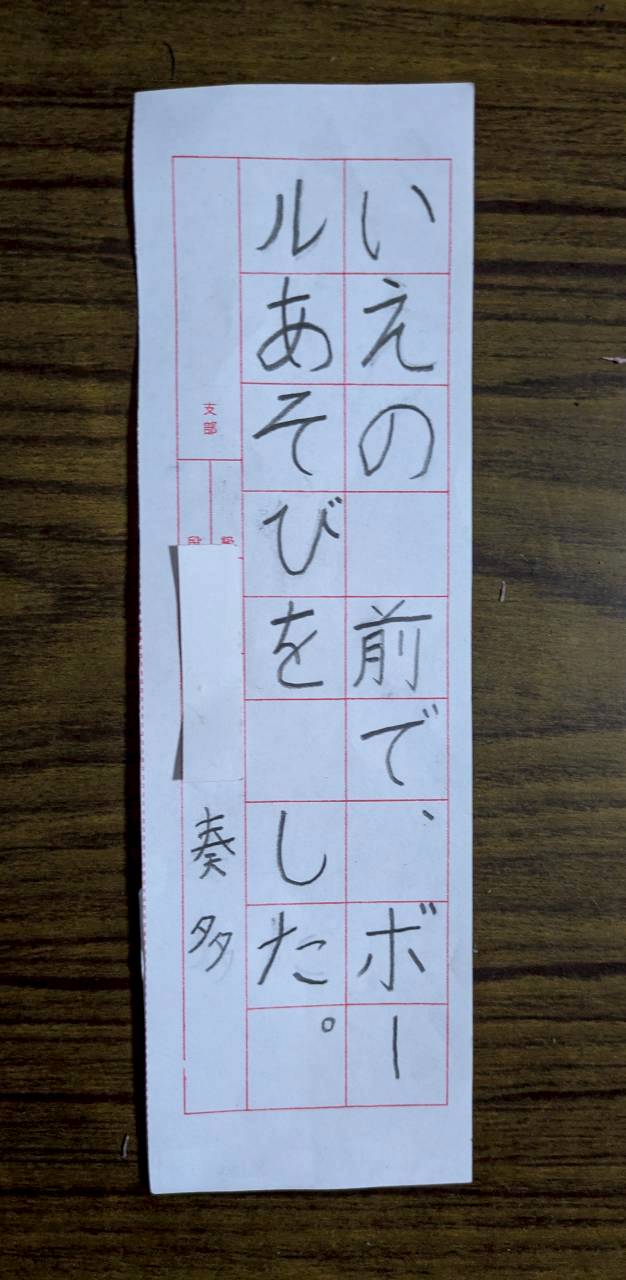 いえの　前で、ボー
ルあそびを　した。
支部
級
段
奏多